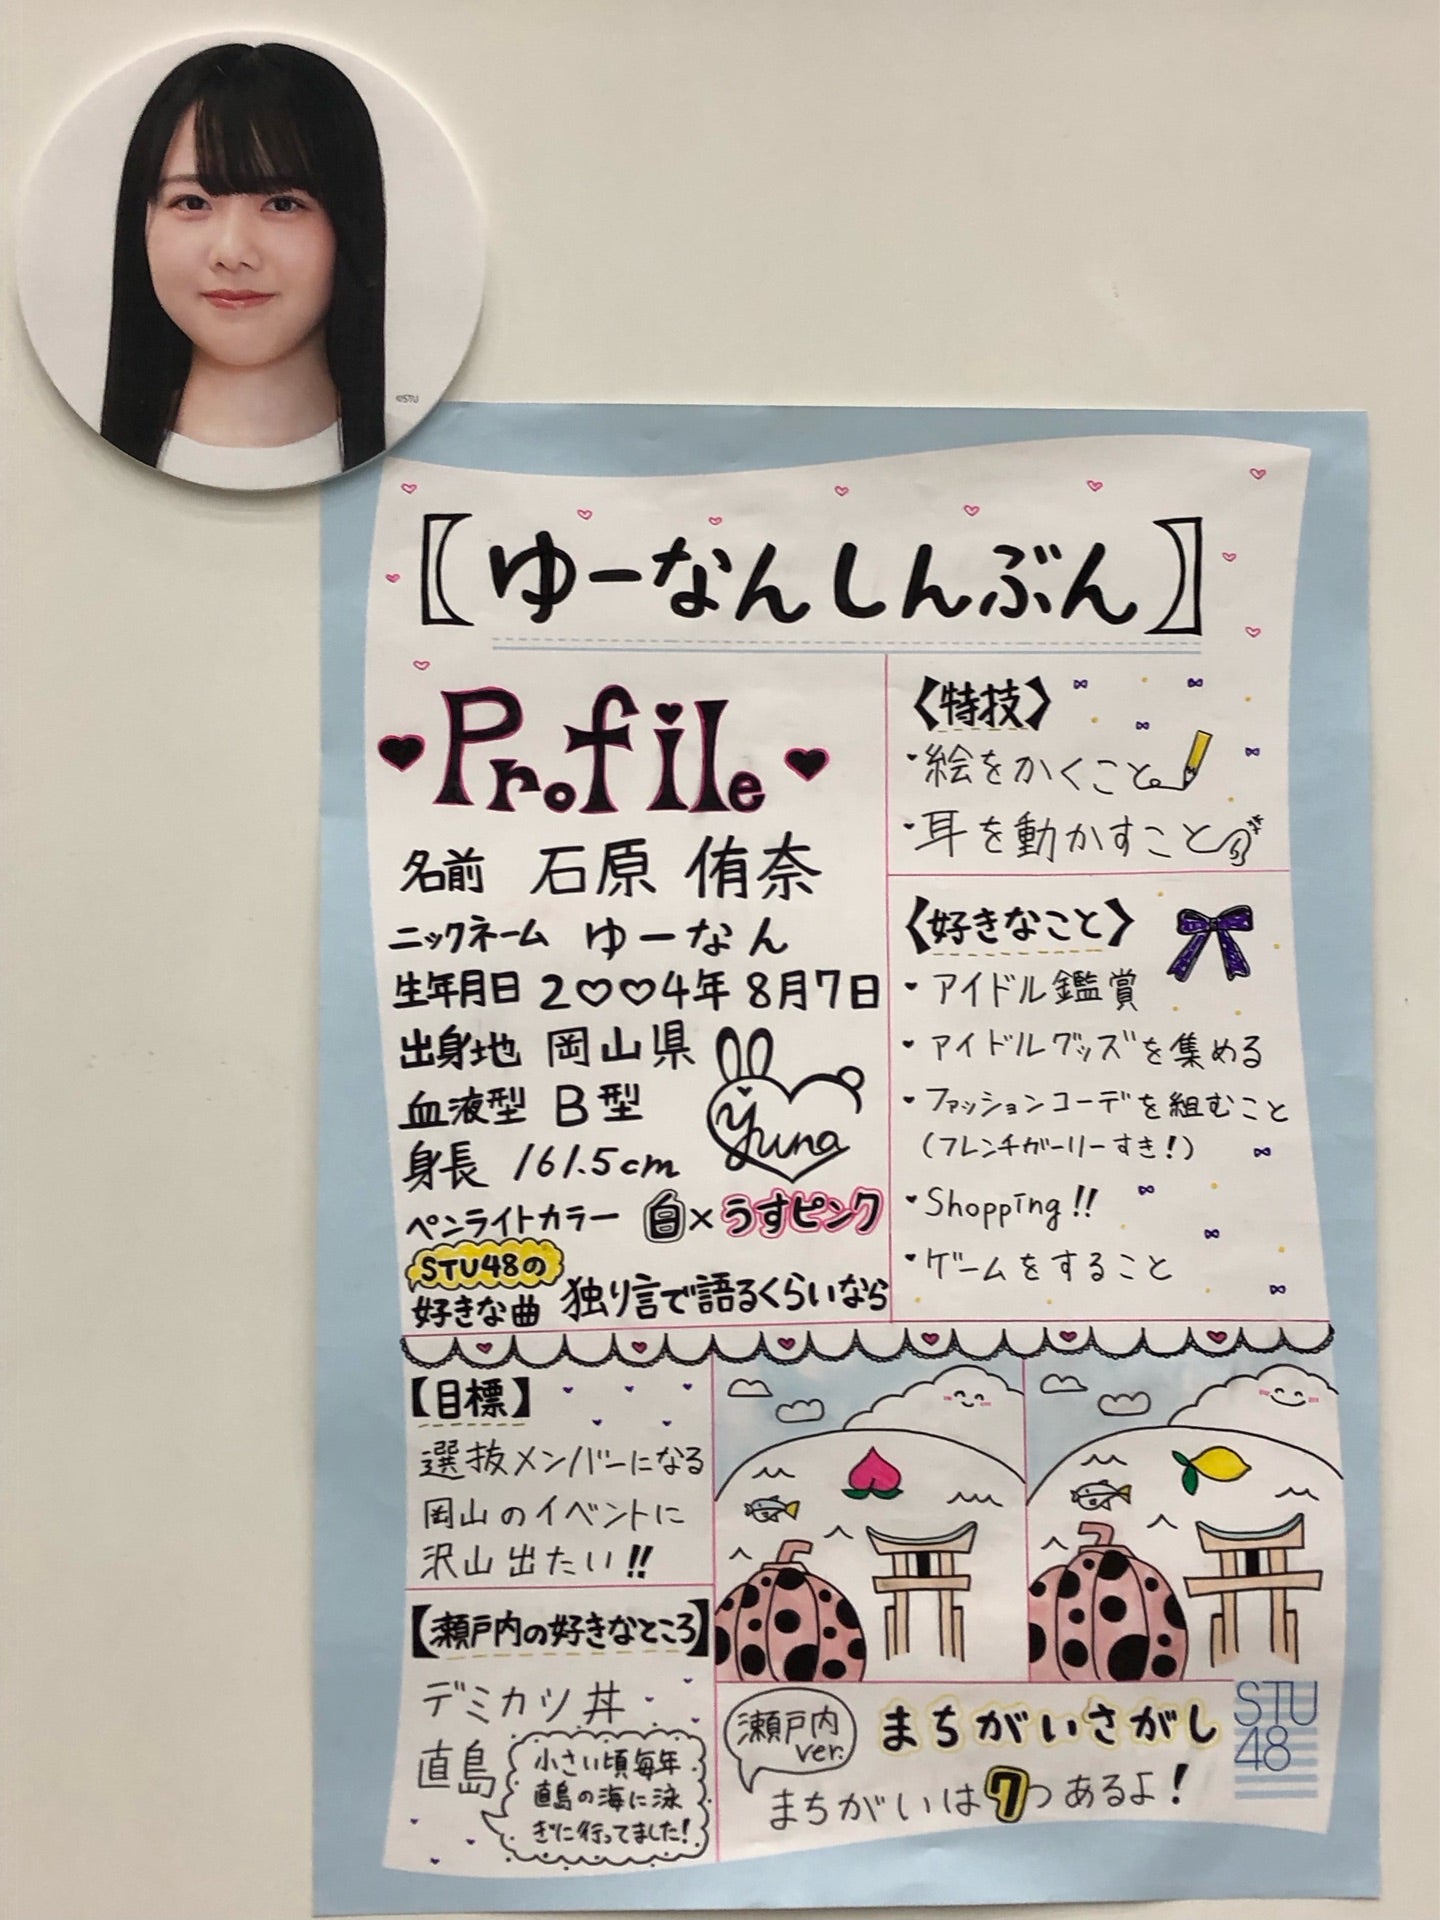 ©STU
【ゆーなんしんぶん】
Profile
名前 石原 侑奈
ニックネーム ゆーなん
生年月日 2♡♡4年 8月7日
出身地 岡山県
血液型 B型
身長 161.5cm
yuna
ペンライトカラー 白×うすピンク
STU48の
好きな曲 独り言で語るくらいなら
〈特技〉
・絵をかくこと
・耳を動かすこと
〈好きなこと〉
・アイドル鑑賞
・アイドルグッズを集める
・ファッションコーデを組むこと
(フレンチガーリーすき!)
・Shopping!!
・ゲームをすること
【目標】
選抜メンバーになる
岡山のイベントに
沢山出たい!!
【瀬戸内の好きなところ】
デミカツ丼
直島
小さい頃毎年
直島の海に泳
ぎに行ってました!
瀬戸内
ver.
まちがいさがし
まちがいは7つあるよ!
STU
48